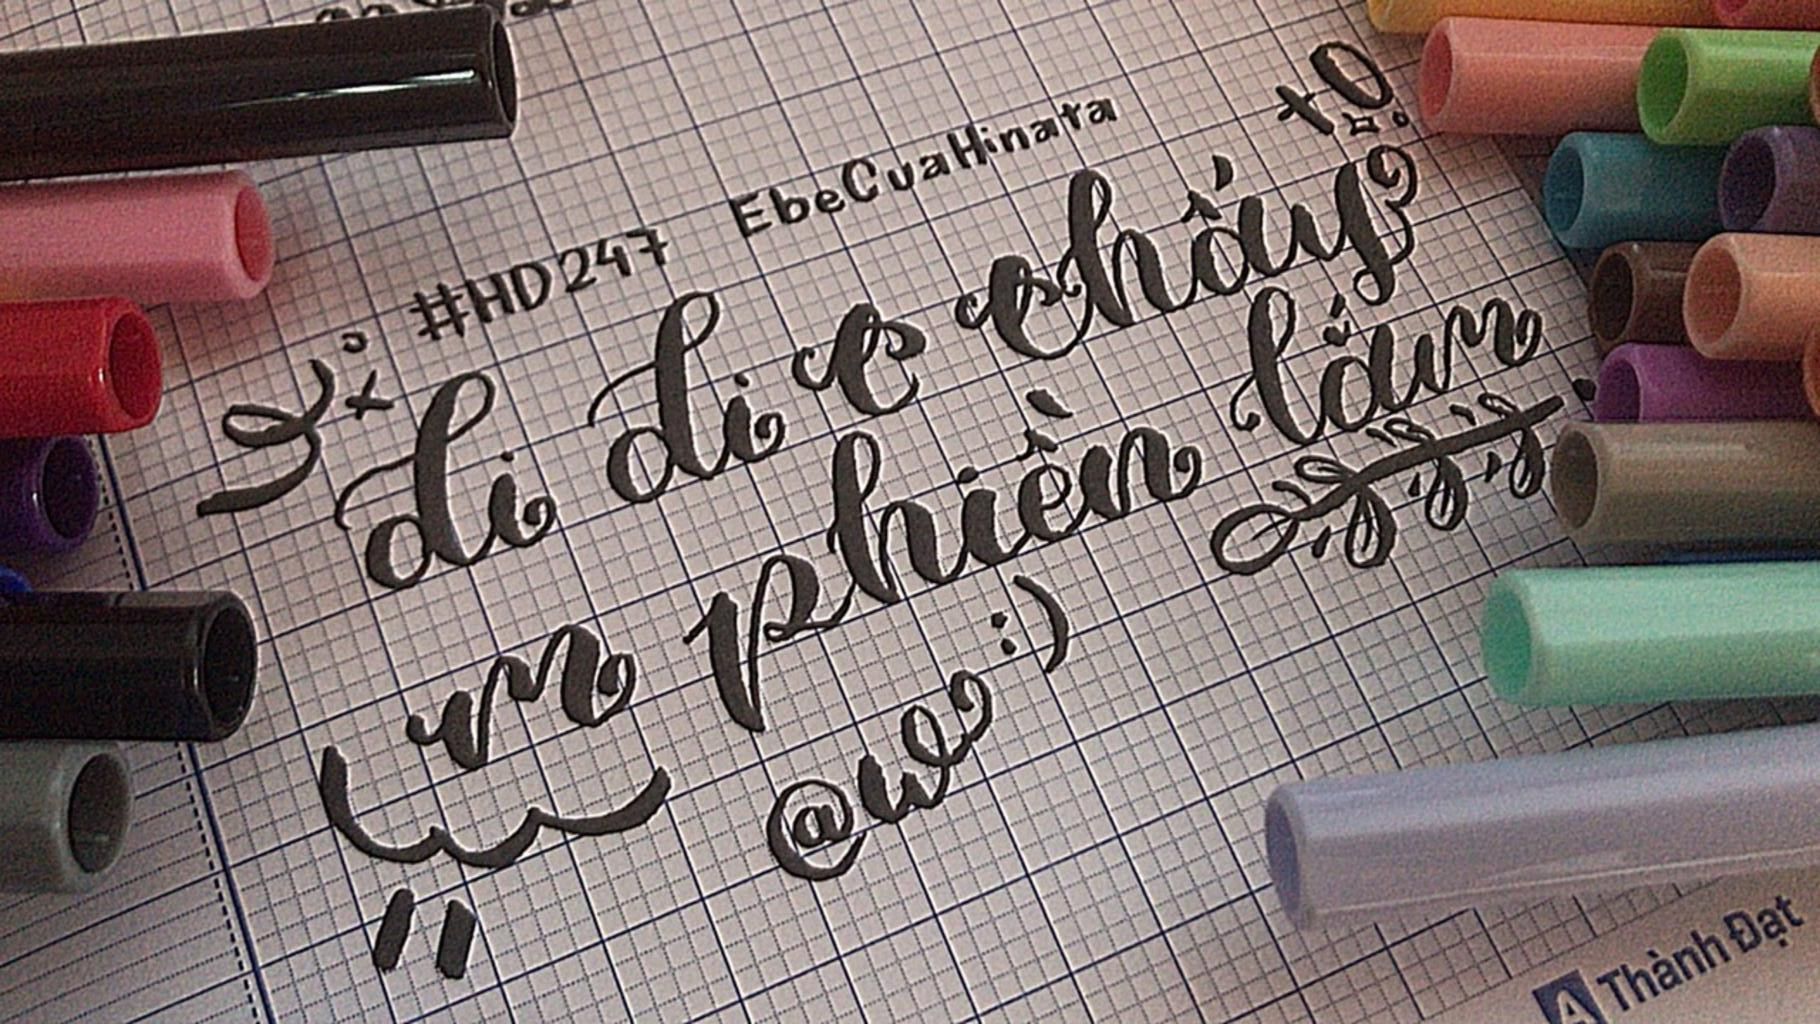 #HD247 EbeCuaHinata
di di e chấy
m phiền lắm
:)
@wo
Thành Đạt